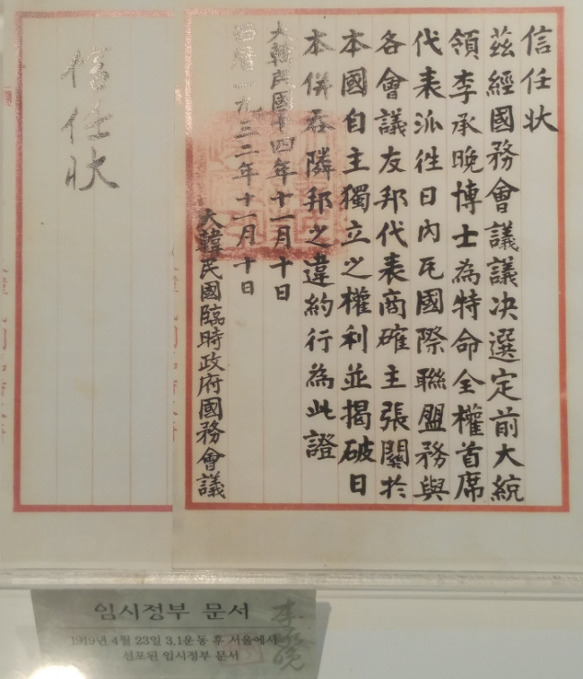 信任状
茲經國務會議議决選定前大統
領李承晚博士為特命全權首席
代表派徃日內瓦國際聯盟務與
各會議友邦代表商確主張關於
本國自主獨立之權利並揭破日
本併吞隣邦之違約行為此證
大韓民國十四年十一月十日
西曆一九三二年十一月十日
大韓民國臨時政府國務會議
信任状
임시정부 문서
1919년 4월 23일 3.1운동 후 서울에서
선포된 임시정부 문서
李承晚